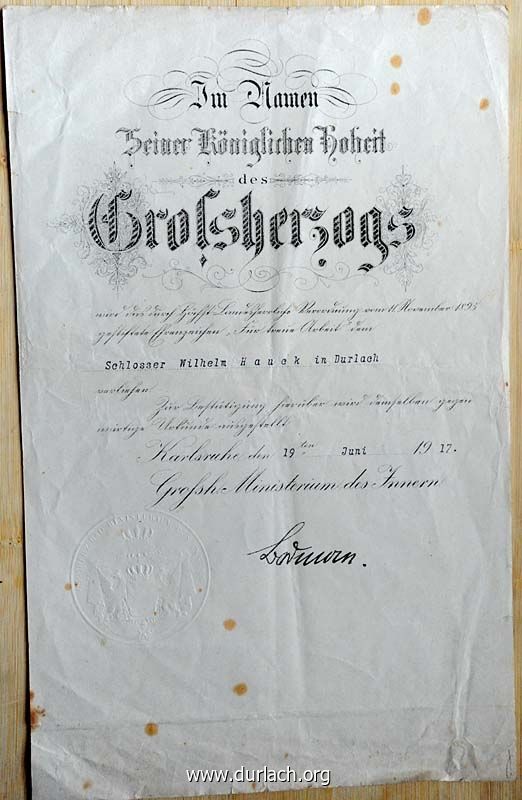 Im Namen
Seiner Königlichen Hoheit
des
Großherzogs
wird das durch Höchst-Landesherrliche Verordnung vom 11. November 1895
gestiftete Ehrenzeichen „Für treue Arbeit“ dem
Schlosser Wilhelm Hauck in Durlach
verliehen.
Zur Bestätigung hierüber wird demselben gegen
wärtige Urkunde ausgestellt.
Karlsruhe den 19ten Juni 1917.
Großh. Ministerium des Innern
Bodman.
www.durlach.org